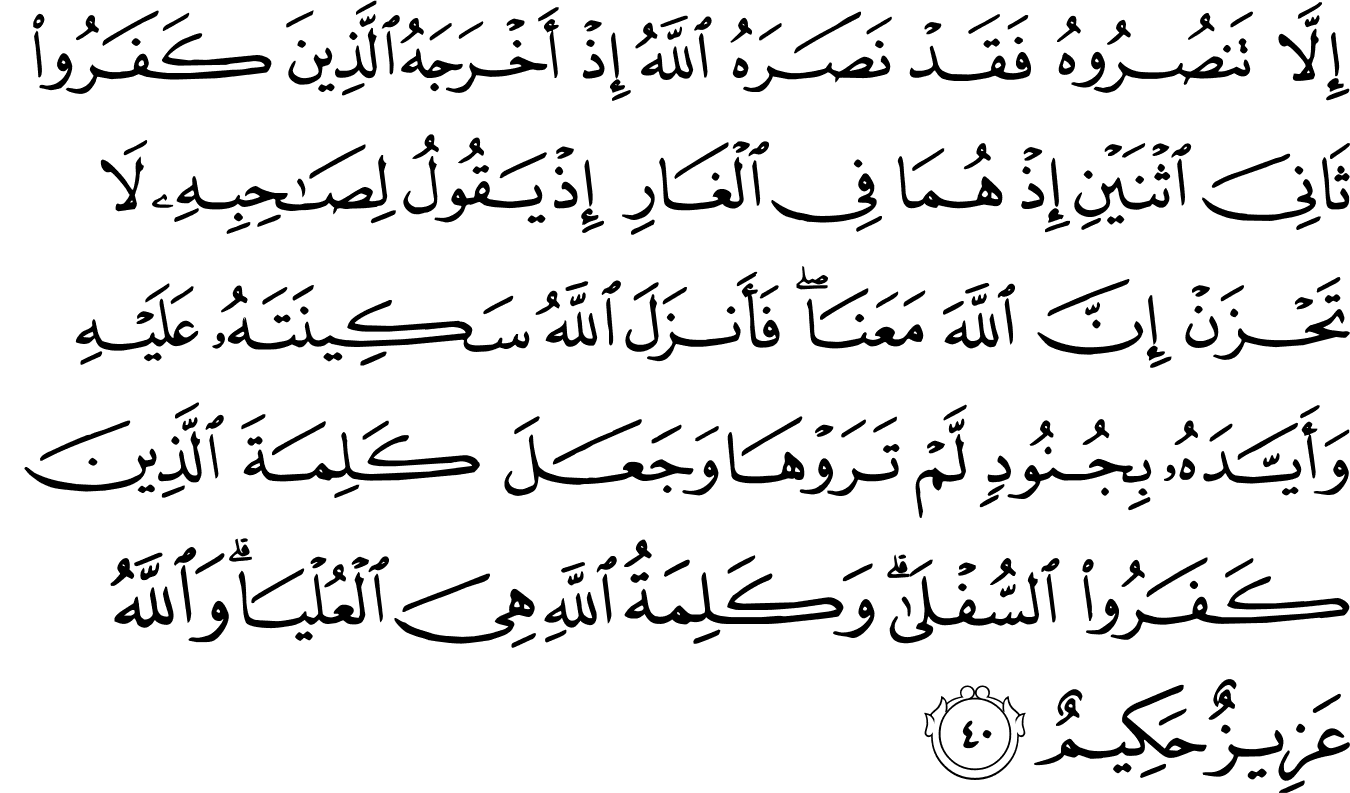 إِلَّا تَنصُرُوهُ فَقَدۡ نَصَرَهُ ٱللَّهُ إِذۡ أَخۡرَجَهُ ٱلَّذِينَ كَفَرُواْ
ثَانِيَ ٱثۡنَيۡنِ إِذۡ هُمَا فِي ٱلۡغَارِ إِذۡ يَقُولُ لِصَٰحِبِهِۦ لَا
تَحۡزَنۡ إِنَّ ٱللَّهَ مَعَنَاۖ فَأَنزَلَ ٱللَّهُ سَكِينَتَهُۥ عَلَيۡهِ
وَأَيَّدَهُۥ بِجُنُودٍ لَّمۡ تَرَوۡهَا وَجَعَلَ كَلِمَةَ ٱلَّذِينَ
كَفَرُواْ ٱلسُّفۡلَىٰۗ وَكَلِمَةُ ٱللَّهِ هِيَ ٱلۡعُلۡيَاۗ وَٱللَّهُ
عَزِيزٌ حَكِيمٌ ٤٠